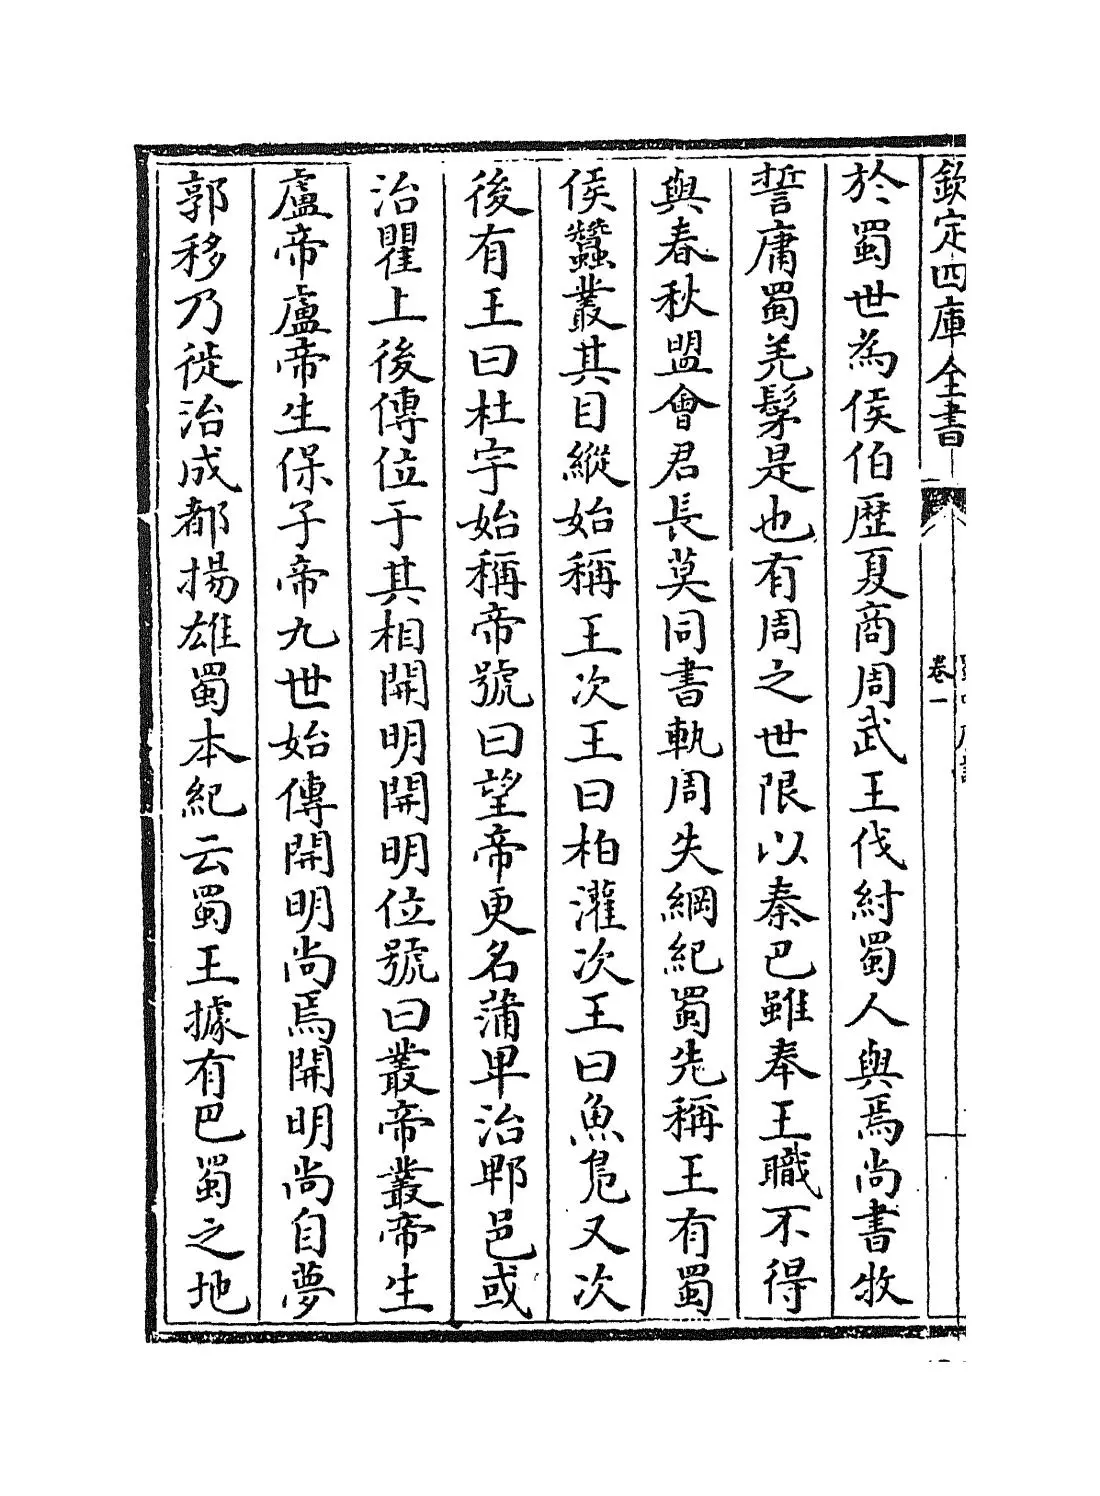 欽定四庫全書
卷一
於蜀世為侯伯歷夏商周武王伐紂蜀人與焉尚書牧
誓庸蜀羌髳是也有周之世限以秦巴雖奉王職不得
與春秋盟會君長莫同書軌周失綱紀蜀先稱王有蜀
侯蠶叢其目縱始稱王次王曰柏灌次王曰魚鳬又次
後有王曰杜宇始稱帝號曰望帝更名蒲卑治郫邑或
治瞿上後傳位于其相開明開明位號曰叢帝叢帝生
盧帝盧帝生保子帝九世始傳開明尚焉開明尚自夢
郭移乃徙治成都揚雄蜀本紀云蜀王據有巴蜀之地